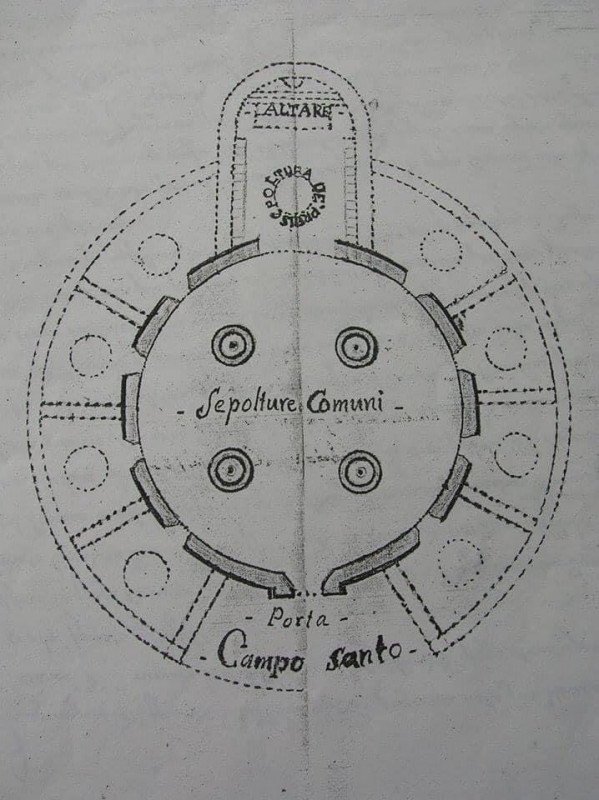 ALTARE
SEPOLTURA DE PRETI
- Sepolture Comuni -
- Porta -
- Campo santo -